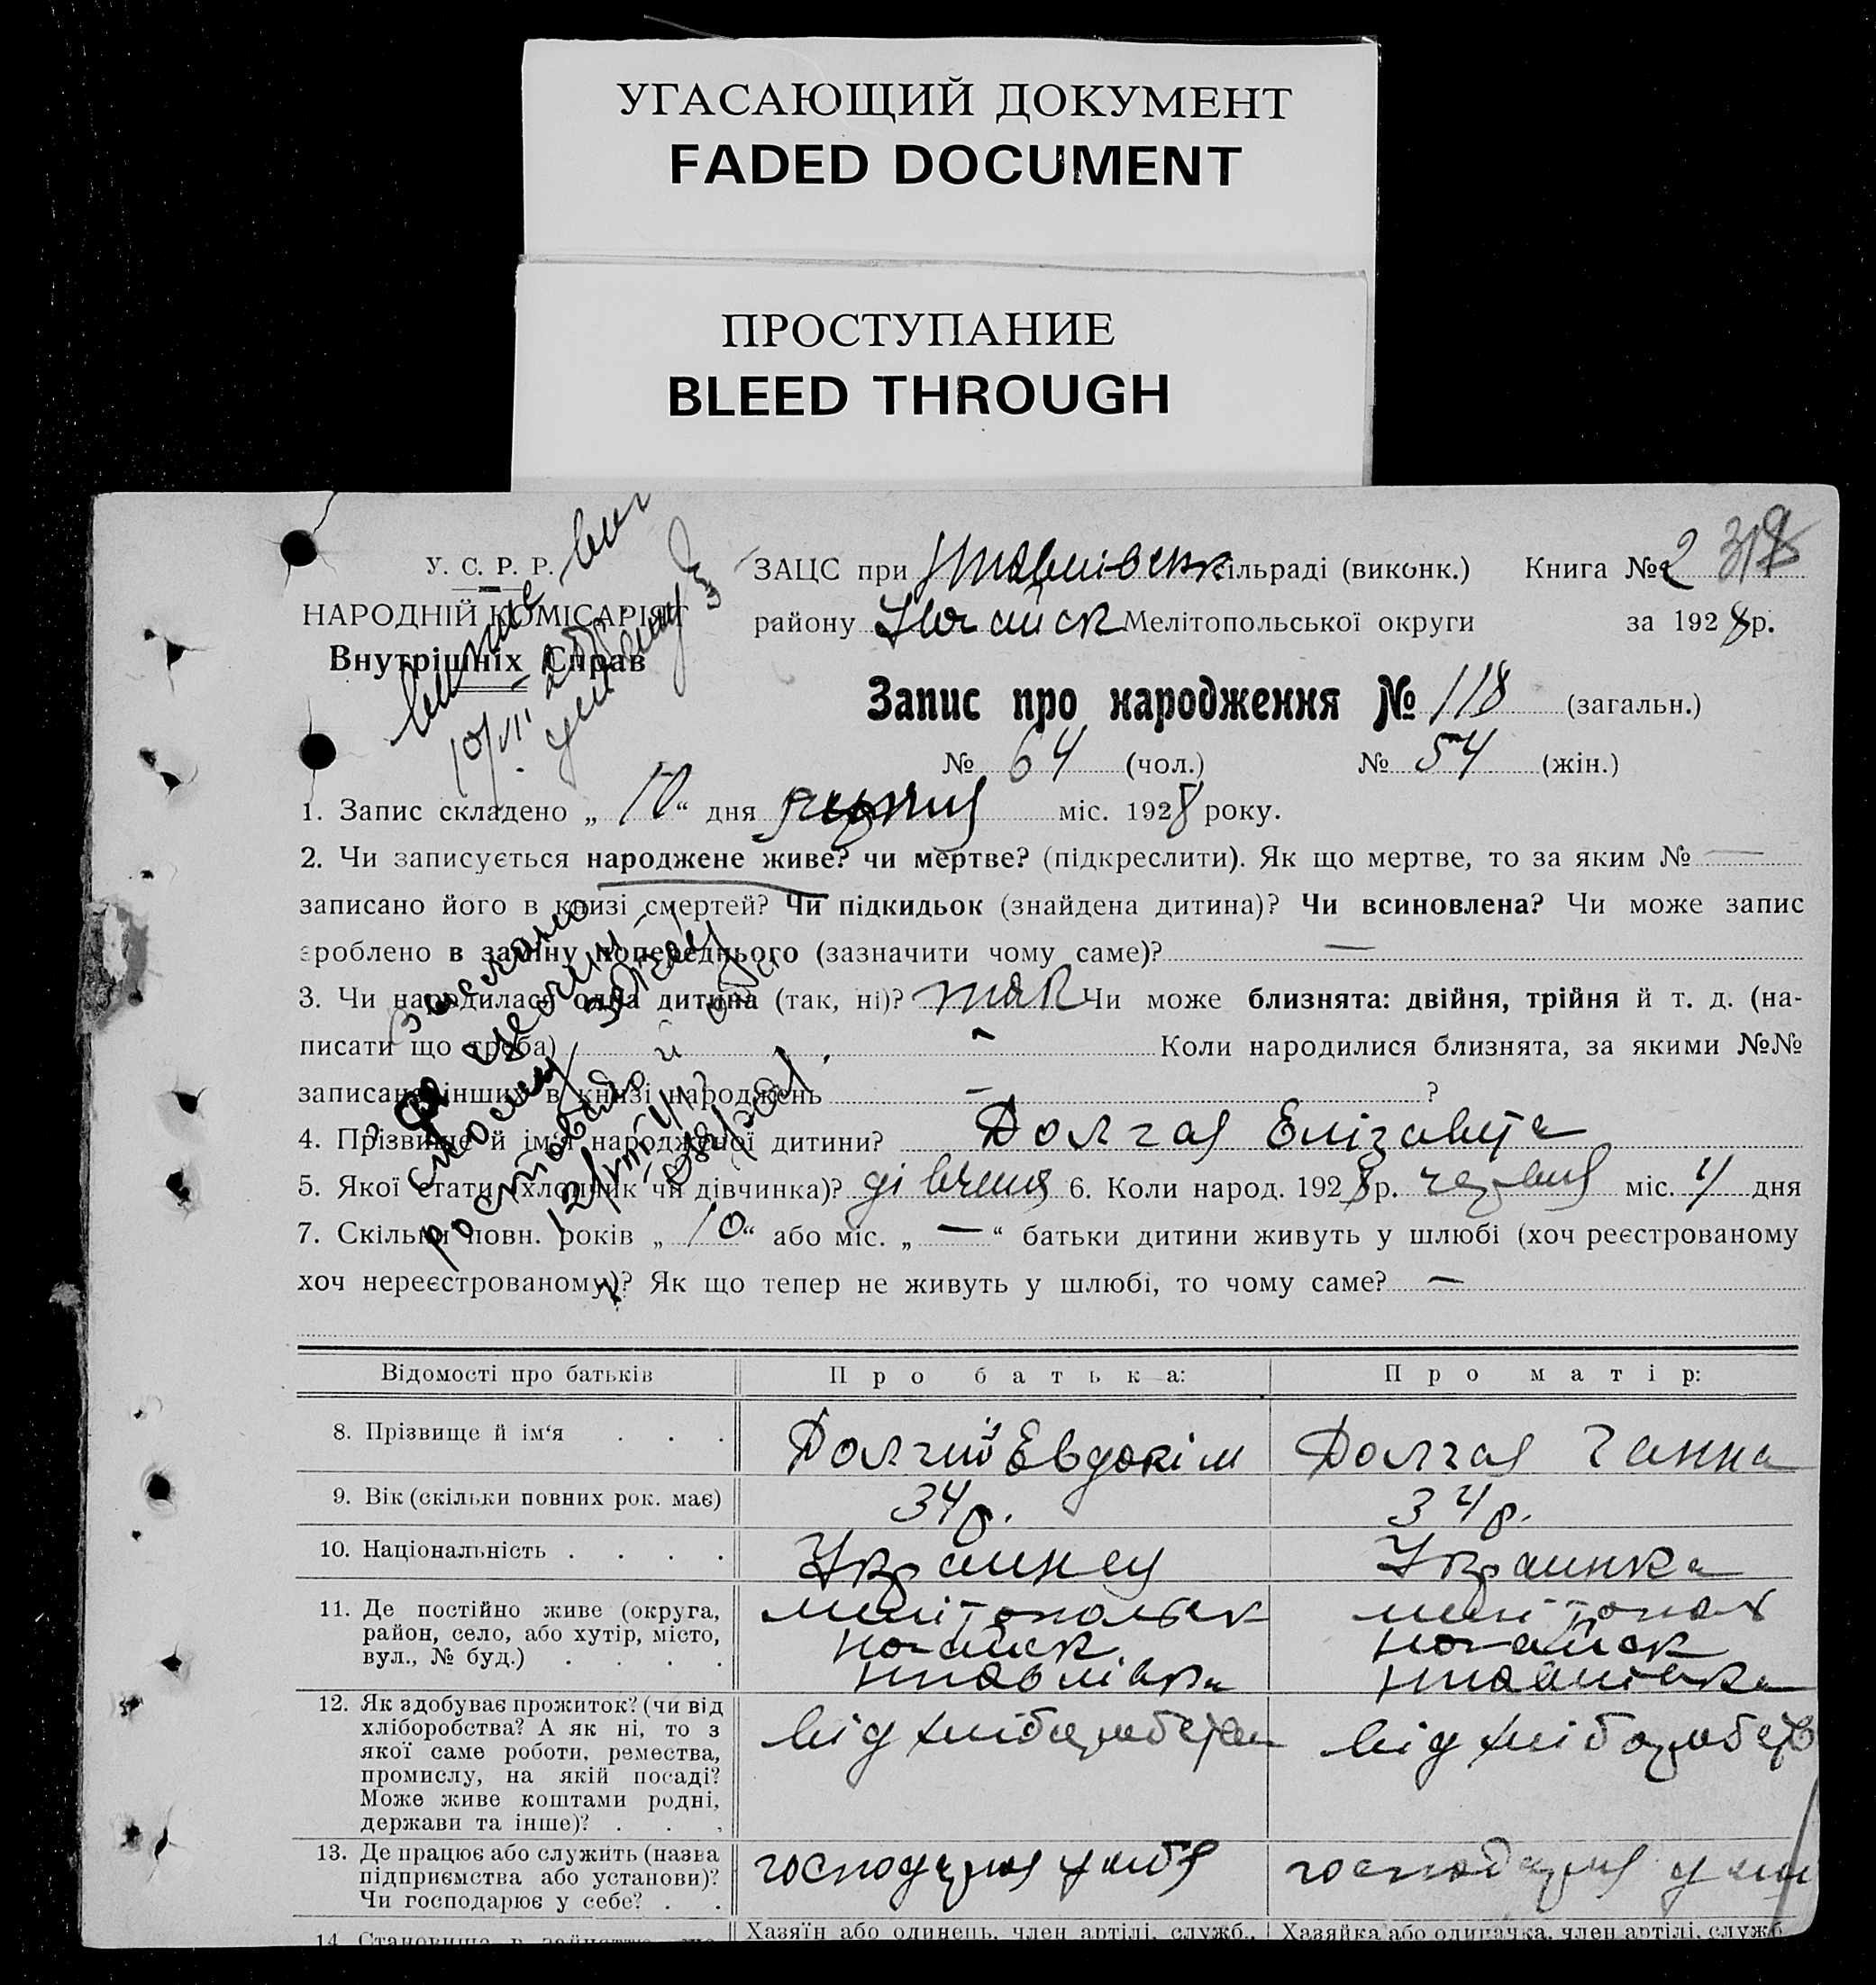 УГАСАЮЩИЙ ДОКУМЕНТ
FADED DOCUMENT
ПРОСТУПАНИЕ
BLEED THROUGH
У. С. Р. Р.
НАРОДНІЙ КОМІСАРІЯТ
Внутрішніх Справ
ЗАЦС при сільраді (виконк.) Книга № 2
району Ногайск Мелітопольської округи за 1928 р.
Запис про народження № 118 (загальн.)
№ 64 (чол.) № 54 (жін.)
1. Запис складено „ 10 “ дня червня міс. 1928 року.
2. Чи записується народжене живе? чи мертве? (підкреслити). Як що мертве, то за яким № —
записано його в книзі смертей? Чи підкидьок (знайдена дитина)? Чи всиновлена? Чи може запис
зроблено в заміну попереднього (зазначити чому саме)? —
3. Чи народилася одна дитина (так, ні)? так Чи може близнята: двійня, трійня й т. д. (на-
писати що треба) — Коли народилися близнята, за якими №№
записано інших в книзі народжень — ?
4. Прізвище й ім'я народженої дитини? Долгая Елізавета
5. Якої стати (хлопчик чи дівчинка)? дівчина 6. Коли народ. 1928 р. червня міс. 4 дня
7. Скільки повн. років „ 10 “ або міс. „ — “ батьки дитини живуть у шлюбі (хоч реєстрованому
хоч нереєстрованому)? Як що тепер не живуть у шлюбі, то чому саме? —
Відомості про батьків Про батька: Про матір:
8. Прізвище й ім‘я . . . Долгий Евдокім Долгая Ганна
9. Вік (скільки повних рок. має) 34 р. 34 р.
10. Національність . . . . Украинец Украинка
11. Де постійно живе (округа,
район, село, або хутір, місто,
вул., № буд.) . . . .
мелітопольск мелітопол
ногайск ногайск
12. Як здобуває прожиток? (чи від
хліборобства? А як ні, то з
якої саме роботи, ремества,
промислу, на якій посаді?
Може живе коштами родні,
держави та інше)? . . .
від хліборобства від хліборобств
13. Де працює або служить (назва
підприємства або установи)?
Чи господарює у себе? . .
господарря у себя господарря у
14. Становище в занятті
Хазяїн або одинець, член артілі, служб., Хазяйка або одиначка, член артілі, служб